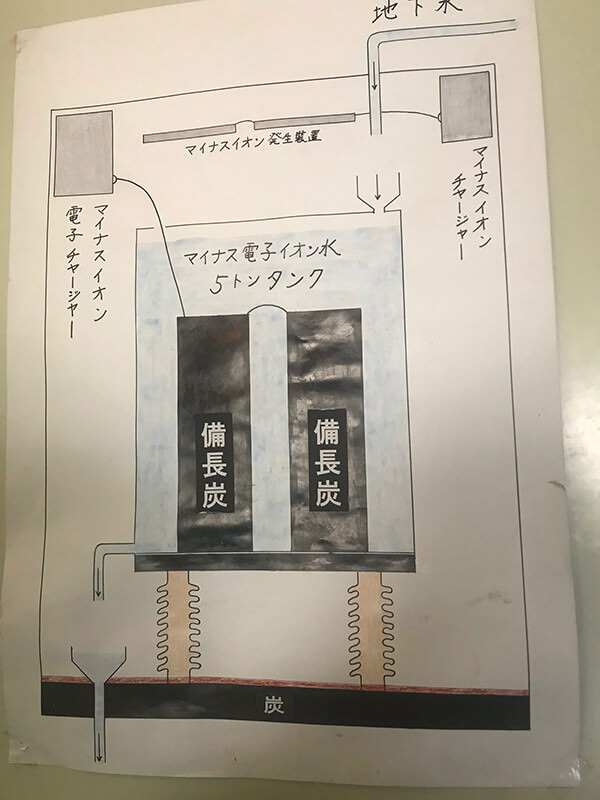 地下水
マイナスイオン発生装置
マイナスイオン
チャージャー
マイナスイオン
電子チャージャー
マイナス電子イオン水
5トンタンク
備長炭
備長炭
炭